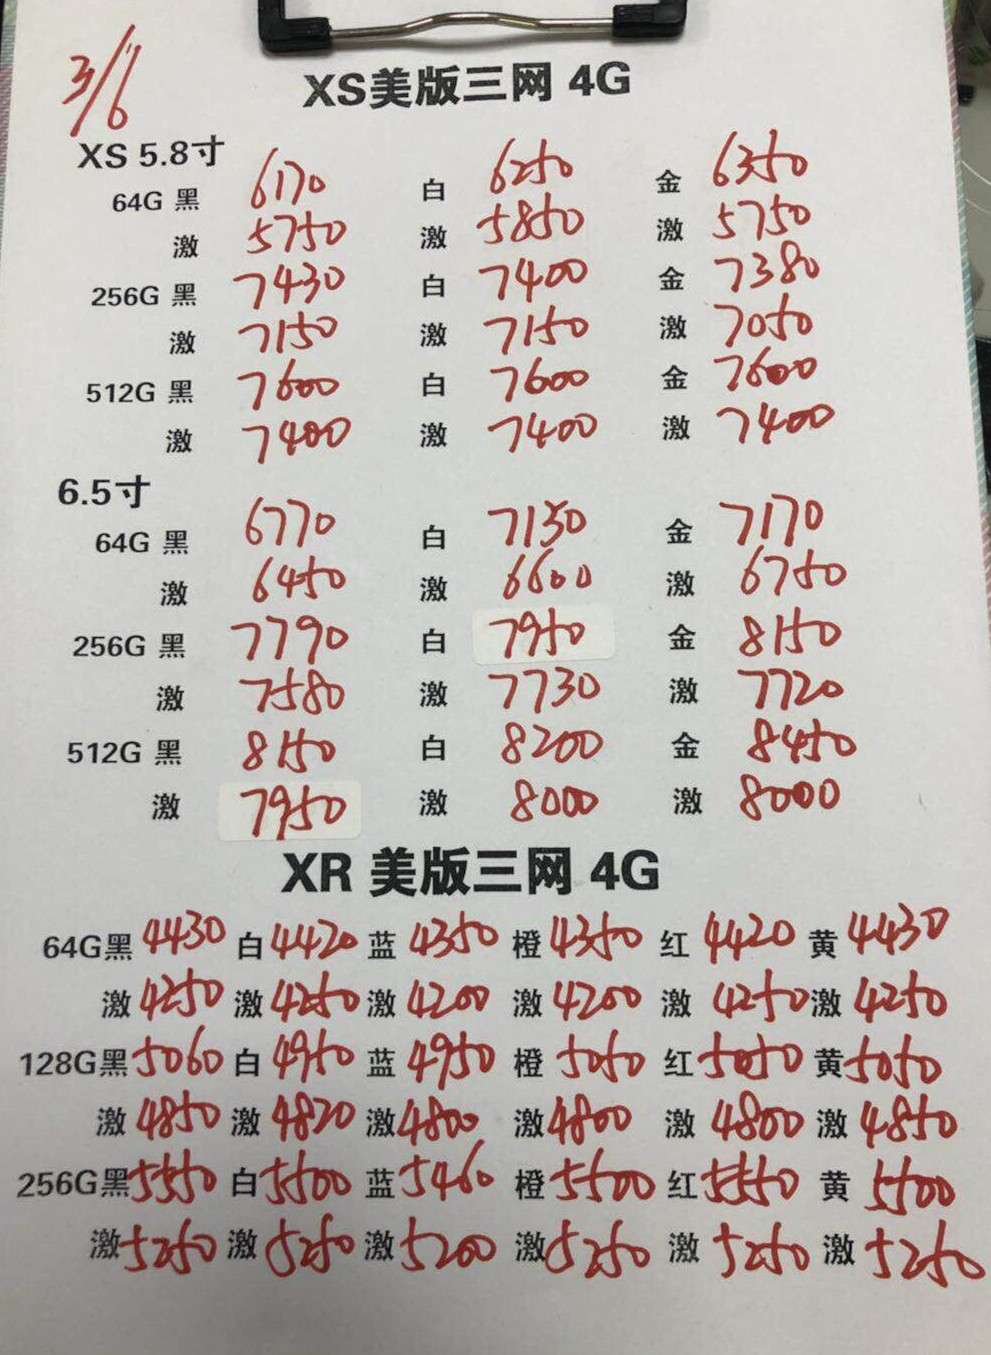 3/6
XS美版三网 4G
XS 5.8寸
64G 黑 6170 白 6250 金 6350
激 5750 激 5850 激 5750
256G 黑 7430 白 7400 金 7380
激 7150 激 7150 激 7050
512G 黑 7600 白 7600 金 7600
激 7400 激 7400 激 7400
6.5寸
64G 黑 6770 白 7130 金 7170
激 6450 激 6600 激 6750
256G 黑 7790 白 7950 金 8150
激 7580 激 7730 激 7720
512G 黑 8150 白 8200 金 8450
激 7950 激 8000 激 8000
XR 美版三网 4G
64G黑 4430 白 4420 蓝 4350 橙 4350 红 4420 黄 4430
激 4250 激 4250 激 4200 激 4200 激 4250 激 4250
128G黑 5060 白 4950 蓝 4950 橙 5050 红 5050 黄 5050
激 4850 激 4820 激 4800 激 4800 激 4800 激 4850
256G黑 5550 白 5500 蓝 5460 橙 5500 红 5550 黄 5500
激 5250 激 5250 激 5200 激 5250 激 5250 激 5250